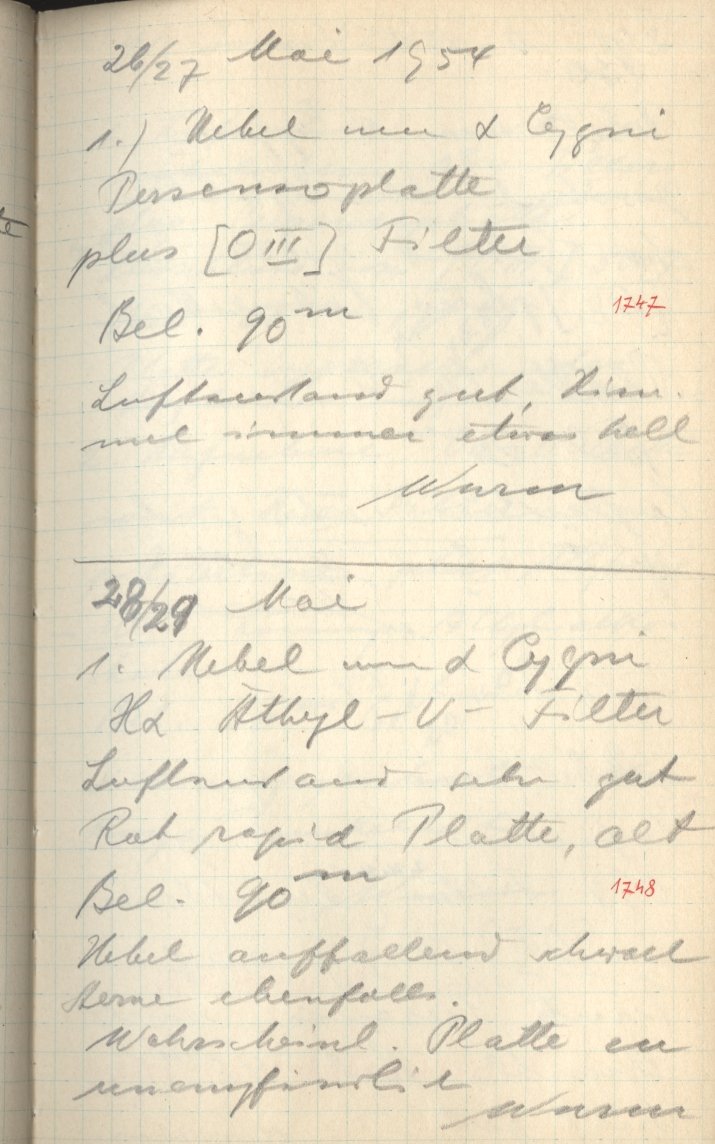 26/27 Mai 1954
1.) Nebel um α Cygni
Persensoplatte
plus [O III] Filter
Bel. 90ᵐ
1747
Luftzustand gut, Him-
mel immer etwas hell
Wurm
28/29 Mai
1. Nebel um α Cygni
Hα Äthyl-V- Filter
Luftzustand sehr gut
Rot rapid Platte, alt
Bel. 90ᵐ
1748
Nebel auffallend schwach
Sterne ebenfalls.
Wahrscheinl. Platte zu
unempfindlich
Wurm